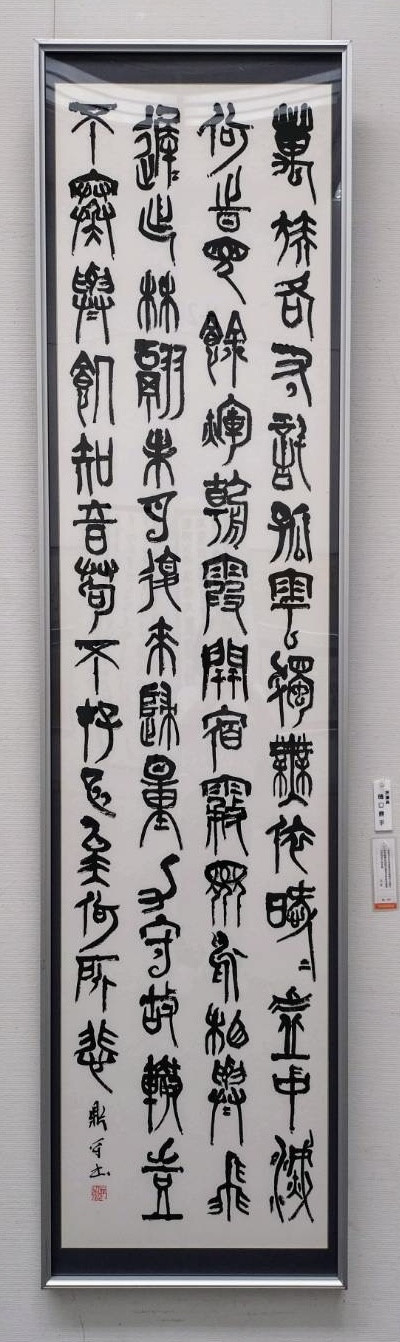 萬族各有託孤雲獨無依曖〻虛中滅
何時見餘暉朝霞開宿霧衆鳥相與飛
遲〻出林翮未夕復來歸量力守故轍豈
不寒與飢知音苟不存已矣何所悲
鼎書
樋口